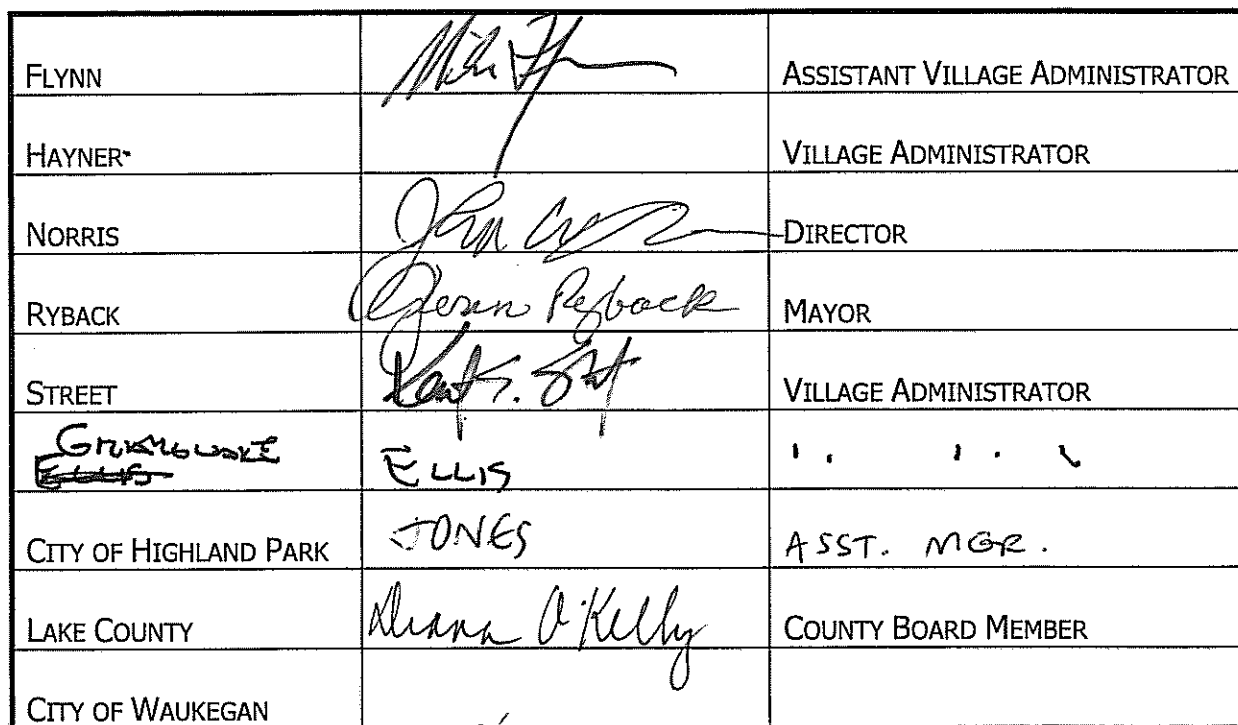 FLYNN Mike Flynn ASSISTANT VILLAGE ADMINISTRATOR
HAYNER VILLAGE ADMINISTRATOR
NORRIS John DIRECTOR
RYBACK Glenn Ryback MAYOR
STREET Kent S. Street VILLAGE ADMINISTRATOR
ELLIS ELLIS
CITY OF HIGHLAND PARK JONES ASST. MGR.
LAKE COUNTY Diana O'Kelly COUNTY BOARD MEMBER
CITY OF WAUKEGAN